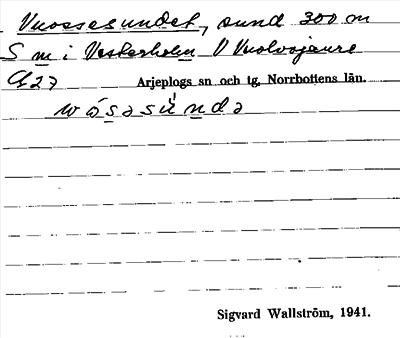 Vuossesundet, sund 300 m
S m i Vesterholm V Vuolvojaure
G27 Arjeplogs sn och tg, Norrbottens län.
wȯ́sǝsu̇́ndǝ
Sigvard Wallström, 1941.